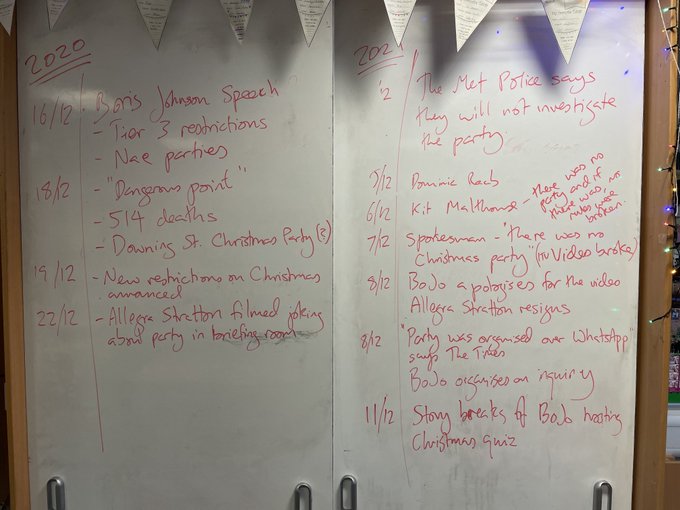 2020
16/12 Boris Johnson Speech
- Tier 3 restrictions
- Nae parties
18/12 - "Dangerous point"
- 514 deaths
- Downing St. Christmas Party (?)
19/12 - New restrictions on Christmas
announced
22/12 - Allegra Stratton filmed joking
about party in briefing room
202
12 The Met Police says
they will not investigate
the party.
5/12 Dominic Raab
6/12 Kit Malthouse - there was no
party and if
there was, no
rules were
broken.
7/12 Spokesman - "there was no
Christmas party" (ITV Video broke)
8/12 BoJo apologises for the video
Allegra Stratton resigns
8/12 "Party was organised over WhatsApp"
says The Times
BoJo organises an inquiry
11/12 Story breaks of BoJo hosting
Christmas quiz